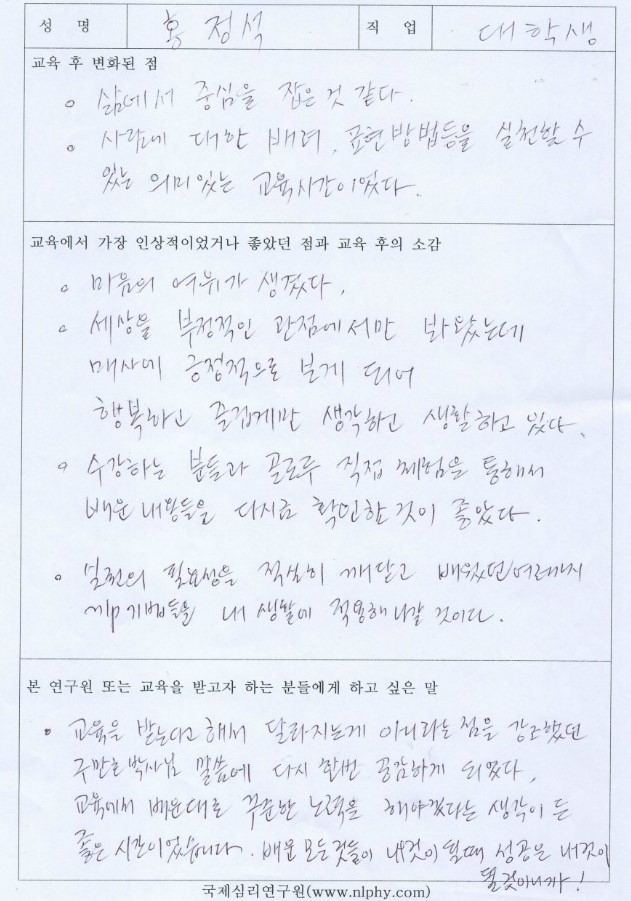 성 명 홍정석 직 업 대학생
교육 후 변화된 점
o 삶에서 중심을 잡은것 같다.
o 사람에 대한 배려, 표현방법등을 실천할 수
있는 의미있는 교육시간이었다.
교육에서 가장 인상적이었거나 좋았던 점과 교육 후의 소감
o 마음의 여유가 생겼다.
o 세상을 부정적인 관점에서만 봐왔는데
매사에 긍정적으로 보게 되어
행복하고 즐겁게만 생각하고 생활하고 있다.
o 수강하는 분들과 골고루 직접 체험을 통해서
배운 내용들을 다시금 확인한 것이 좋았다.
o 실천의 필요성을 적실히 깨닫고 배웠던 여러가지
nlp 기법들을 내 생활에 적용해나갈 것이다.
본 연구원 또는 교육을 받고자 하는 분들에게 하고 싶은 말
• 교육을 받는다고 해서 달라지는게 아니라는 점을 강조했던
구만호 박사님 말씀에 다시 한번 공감하게 되었다.
교육에서 배운대로 꾸준한 노력을 해야겠다는 생각이 든
좋은 시간이었습니다. 배운 모든것들이 내것이 될때 성공은 내것이
될것아니까!
국제심리연구원(www.nlphy.com)